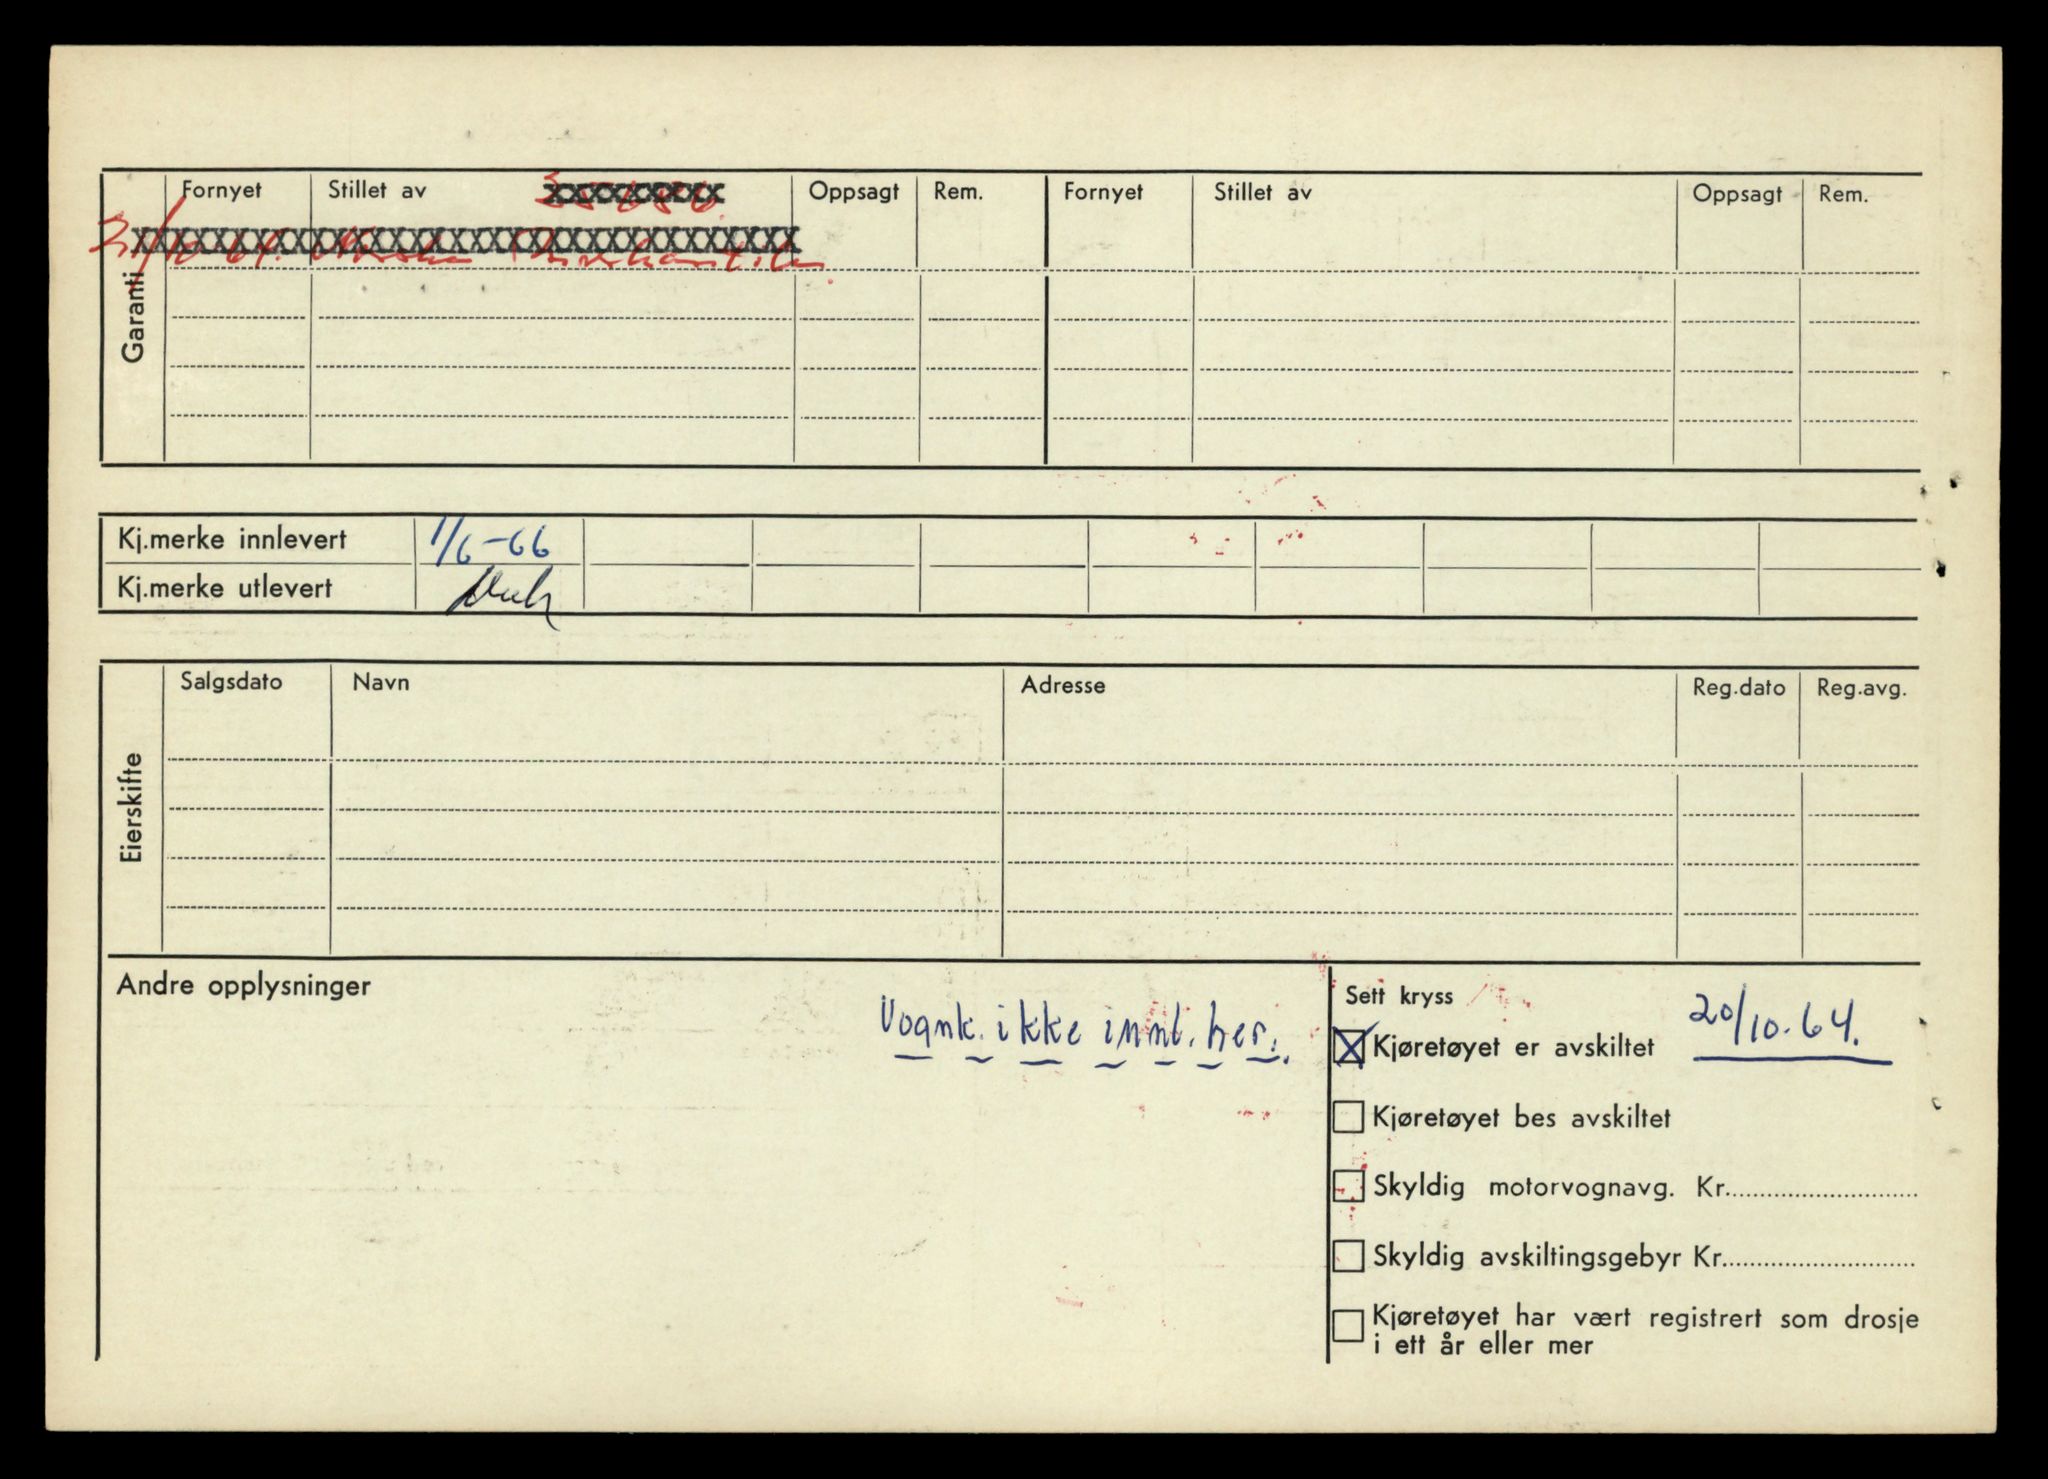 Fornyet Stillet av Oppsagt Rem. Fornyet Stillet av Oppsagt Rem.
Garanti
Kj.merke innlevert 1/6-66
Kj.merke utlevert
Salgsdato Navn Adresse Reg.dato Reg.avg.
Eierskifte
Andre opplysninger
Vognk. ikke innl. her.
Sett kryss
Kjøretøyet er avskiltet 20/10.64.
Kjøretøyet bes avskiltet
Skyldig motorvognavg. Kr.
Skyldig avskiltingsgebyr Kr.
Kjøretøyet har vært registrert som drosje
i ett år eller mer